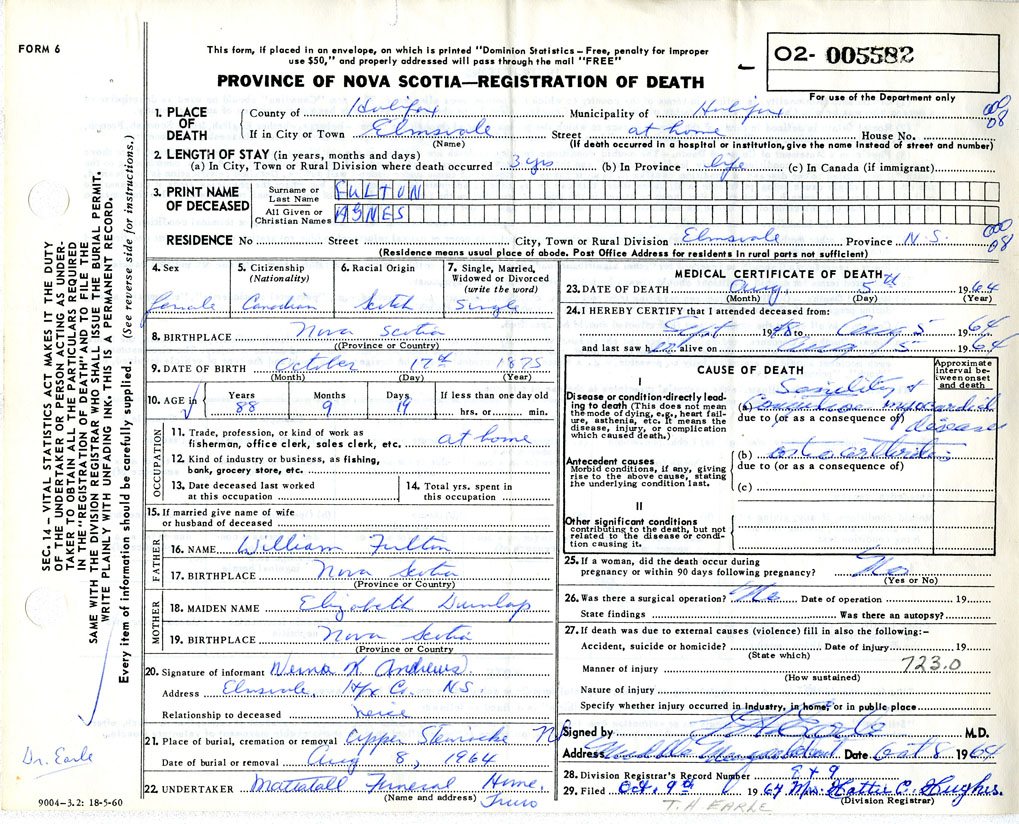 FORM 6
This form, if placed in an envelope, on which is printed "Dominion Statistics – Free, penalty for improper
use $50," and properly addressed will pass through the mail "FREE"
O2- 005582
PROVINCE OF NOVA SCOTIA—REGISTRATION OF DEATH
For use of the Department only
1. PLACE OF DEATH
County of Halifax Municipality of Halifax
08
If in City or Town Elmsvale Street at home House No.
(Name) (If death occurred in a hospital or institution, give the name instead of street and number)
2. LENGTH OF STAY (in years, months and days)
(a) In City, Town or Rural Division where death occurred 3 yrs (b) In Province life (c) In Canada (if immigrant)
3. PRINT NAME OF DECEASED
Surname or Last Name FULTON
All Given or Christian Names AGNES
RESIDENCE No Street City, Town or Rural Division Elmsvale Province N.S.
08
(Residence means usual place of abode. Post Office Address for residents in rural parts not sufficient)
4. Sex
female
5. Citizenship
(Nationality)
Canadian
6. Racial Origin
Scotch
7. Single, Married,
Widowed or Divorced
(write the word)
Single
8. BIRTHPLACE Nova Scotia
((Province or Country)
9. DATE OF BIRTH October 17th 1875
(Month) (Day) (Year)
10. AGE in
Years Months Days If less than one day
88 9 19 hrs. or min.
OCCUPATION
11. Trade, profession, or kind of work as
fisherman, office clerk, sales clerk, etc. at home
12. Kind of industry or business, as fishing,
bank, grocery store, etc.
13. Date deceased last worked
at this occupation
14. Total yrs. spent in
this occupation
15. If married give name of wife
or husband of deceased
FATHER
16. NAME William Fulton
17. BIRTHPLACE Nova Scotia
(Province or Country)
MOTHER
18. MAIDEN NAME Elizabeth Dunlap
19. BIRTHPLACE Nova Scotia
(Province or Country)
20. Signature of informant Verna K Andrews
Address Elmsvale, Hfx Co. N.S.
Relationship to deceased neice
21. Place of burial, cremation or removal Upper Stewiacke N
Date of burial or removal Aug 8, 1964
22. UNDERTAKER Mattatall Funeral Home,
(Name and address) Truro
MEDICAL CERTIFICATE OF DEATH
23. DATE OF DEATH Aug. 5th 1964
(Month) (Day)
24. I HEREBY CERTIFY that I attended deceased from:
Sept 1948 to Aug 5 1964
and last saw her alive on Aug 5 1964
CAUSE OF DEATH
Approximate
interval be-
tween onset
and death
I
Disease or condition directly lead-
ing to death (This does not mean
the mode of dying, e.g., heart fail-
ure, asthenia, etc. It means the
disease, injury, or complication
which caused death.)
Senility &
(a) myocardial
due to (or as a consequence of) disease
Antecedent causes
Morbid conditions, if any, giving
rise to the above cause, stating
the underlying condition last.
(b) osteoarthritis
due to (or as a consequence of)
(c)
II
Other significant conditions
contributing to the death, but not
related to the disease or condi-
tion causing it.
25. If a woman, did the death occur during
pregnancy or within 90 days following pregnancy? No
(Yes or No)
26. Was there a surgical operation? No Date of operation 19
State findings Was there an autopsy?
27. If death was due to external causes (violence) fill in also the following:–
Accident, suicide or homicide? Date of injury 19
(State which)
723.0
Manner of injury
(How sustained)
Nature of injury
Specify whether injury occurred in industry, in home, or in public place
Signed by T A Earle M.D.
Address Middle Musquodoboit Date Oct 8 1964
28. Division Registrar's Record Number 8 + 9
29. Filed Oct. 9th 1964 Mrs. Hattie C. Hughes.
(Division Registrar)
T. A EARLE
SEC. 14 – VITAL STATISTICS ACT MAKES IT THE DUTY
OF THE UNDERTAKER OR PERSON ACTING AS UNDER-
TAKER TO OBTAIN ALL THE PARTICULARS REQUIRED
IN THE "REGISTRATION OF DEATH" AND TO FILE THE
SAME WITH THE DIVISION REGISTRAR WHO SHALL ISSUE THE BURIAL PERMIT.
WRITE PLAINLY WITH UNFADING INK. THIS IS A PERMANENT RECORD.
Every item of information should be carefully supplied. (See reverse side for instructions.)
Dr. Earle
9004–3.2: 18-5-60